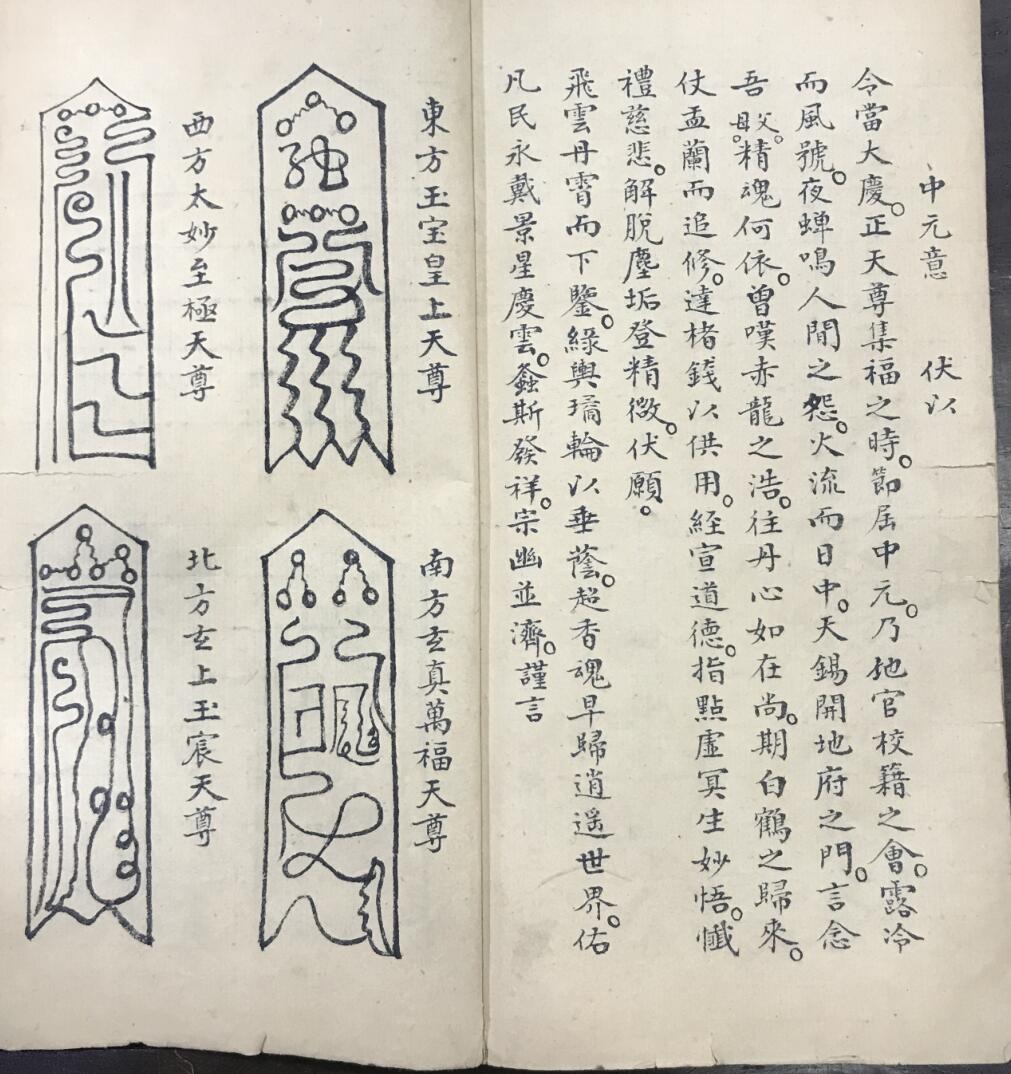 中元意　伏以
令當大慶。正天尊集福之時。節届中元。乃地官校籍之會。露冷
而風號。夜蟬鳴人間之怨。火流而日中。天錫開地府之門。言念
吾父。母。精魂何依。曾嘆赤龍之浩。往丹心如在尚。期白鶴之歸來。
仗盂蘭而追修。達楮錢以供用。経宣道德。指點虛冥生妙悟。懺
禮慈悲。解脫塵垢登精微。伏願。
飛雲丹霄而下鑒。綠輿璚輪以垂蔭。超香魂早歸逍遥世界。佑
凡民永戴景星慶雲。螽斯發祥。宗幽並濟。謹言
東方玉宝皇上天尊
西方太妙至極天尊
南方玄真萬福天尊
北方玄上玉宸天尊